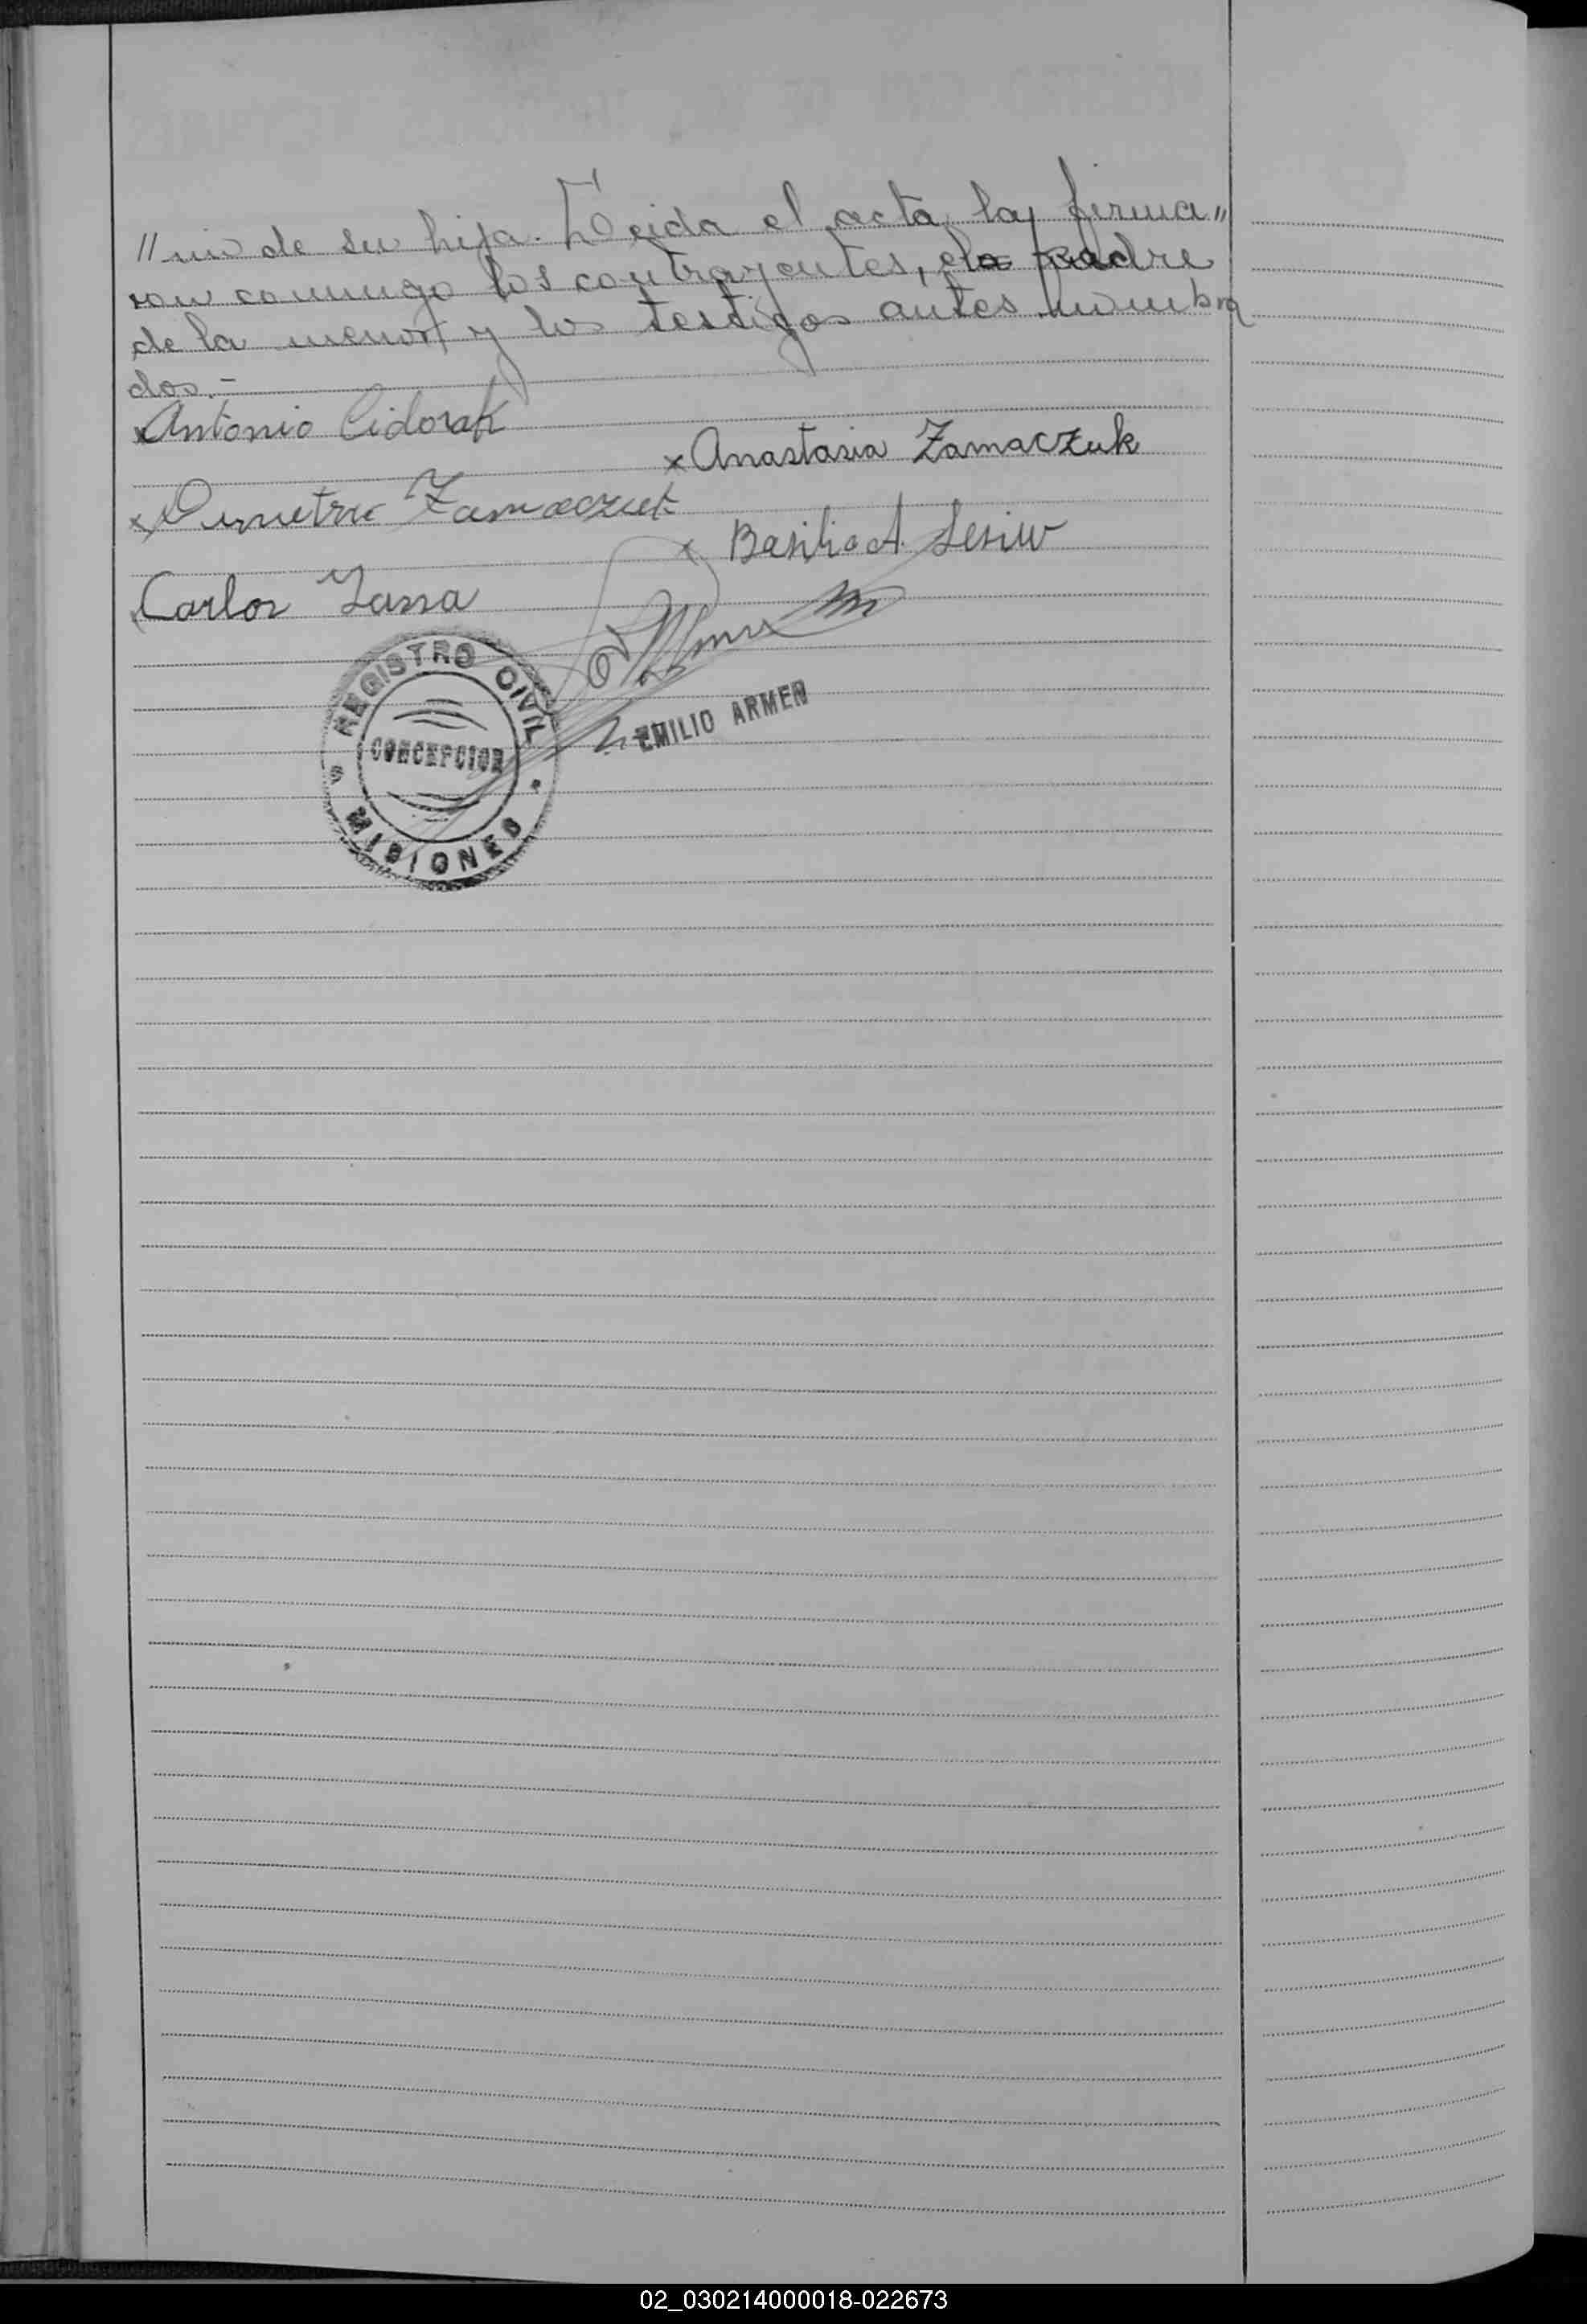 //nio de su hija. Leida el acta, la firma//
ron conmigo los contrayentes, el padre
de la menor y los testigos antes nombra
dos.-
x Antonio Cidorak
x Anastasia Zamaczuk
x Demetrio Zamaczuk
x Basilio A. Lesiw
Carlos Jassa
REGISTRO CIVIL
CONCEPCION
MISIONES
EMILIO ARMER
02_030214000018-022673